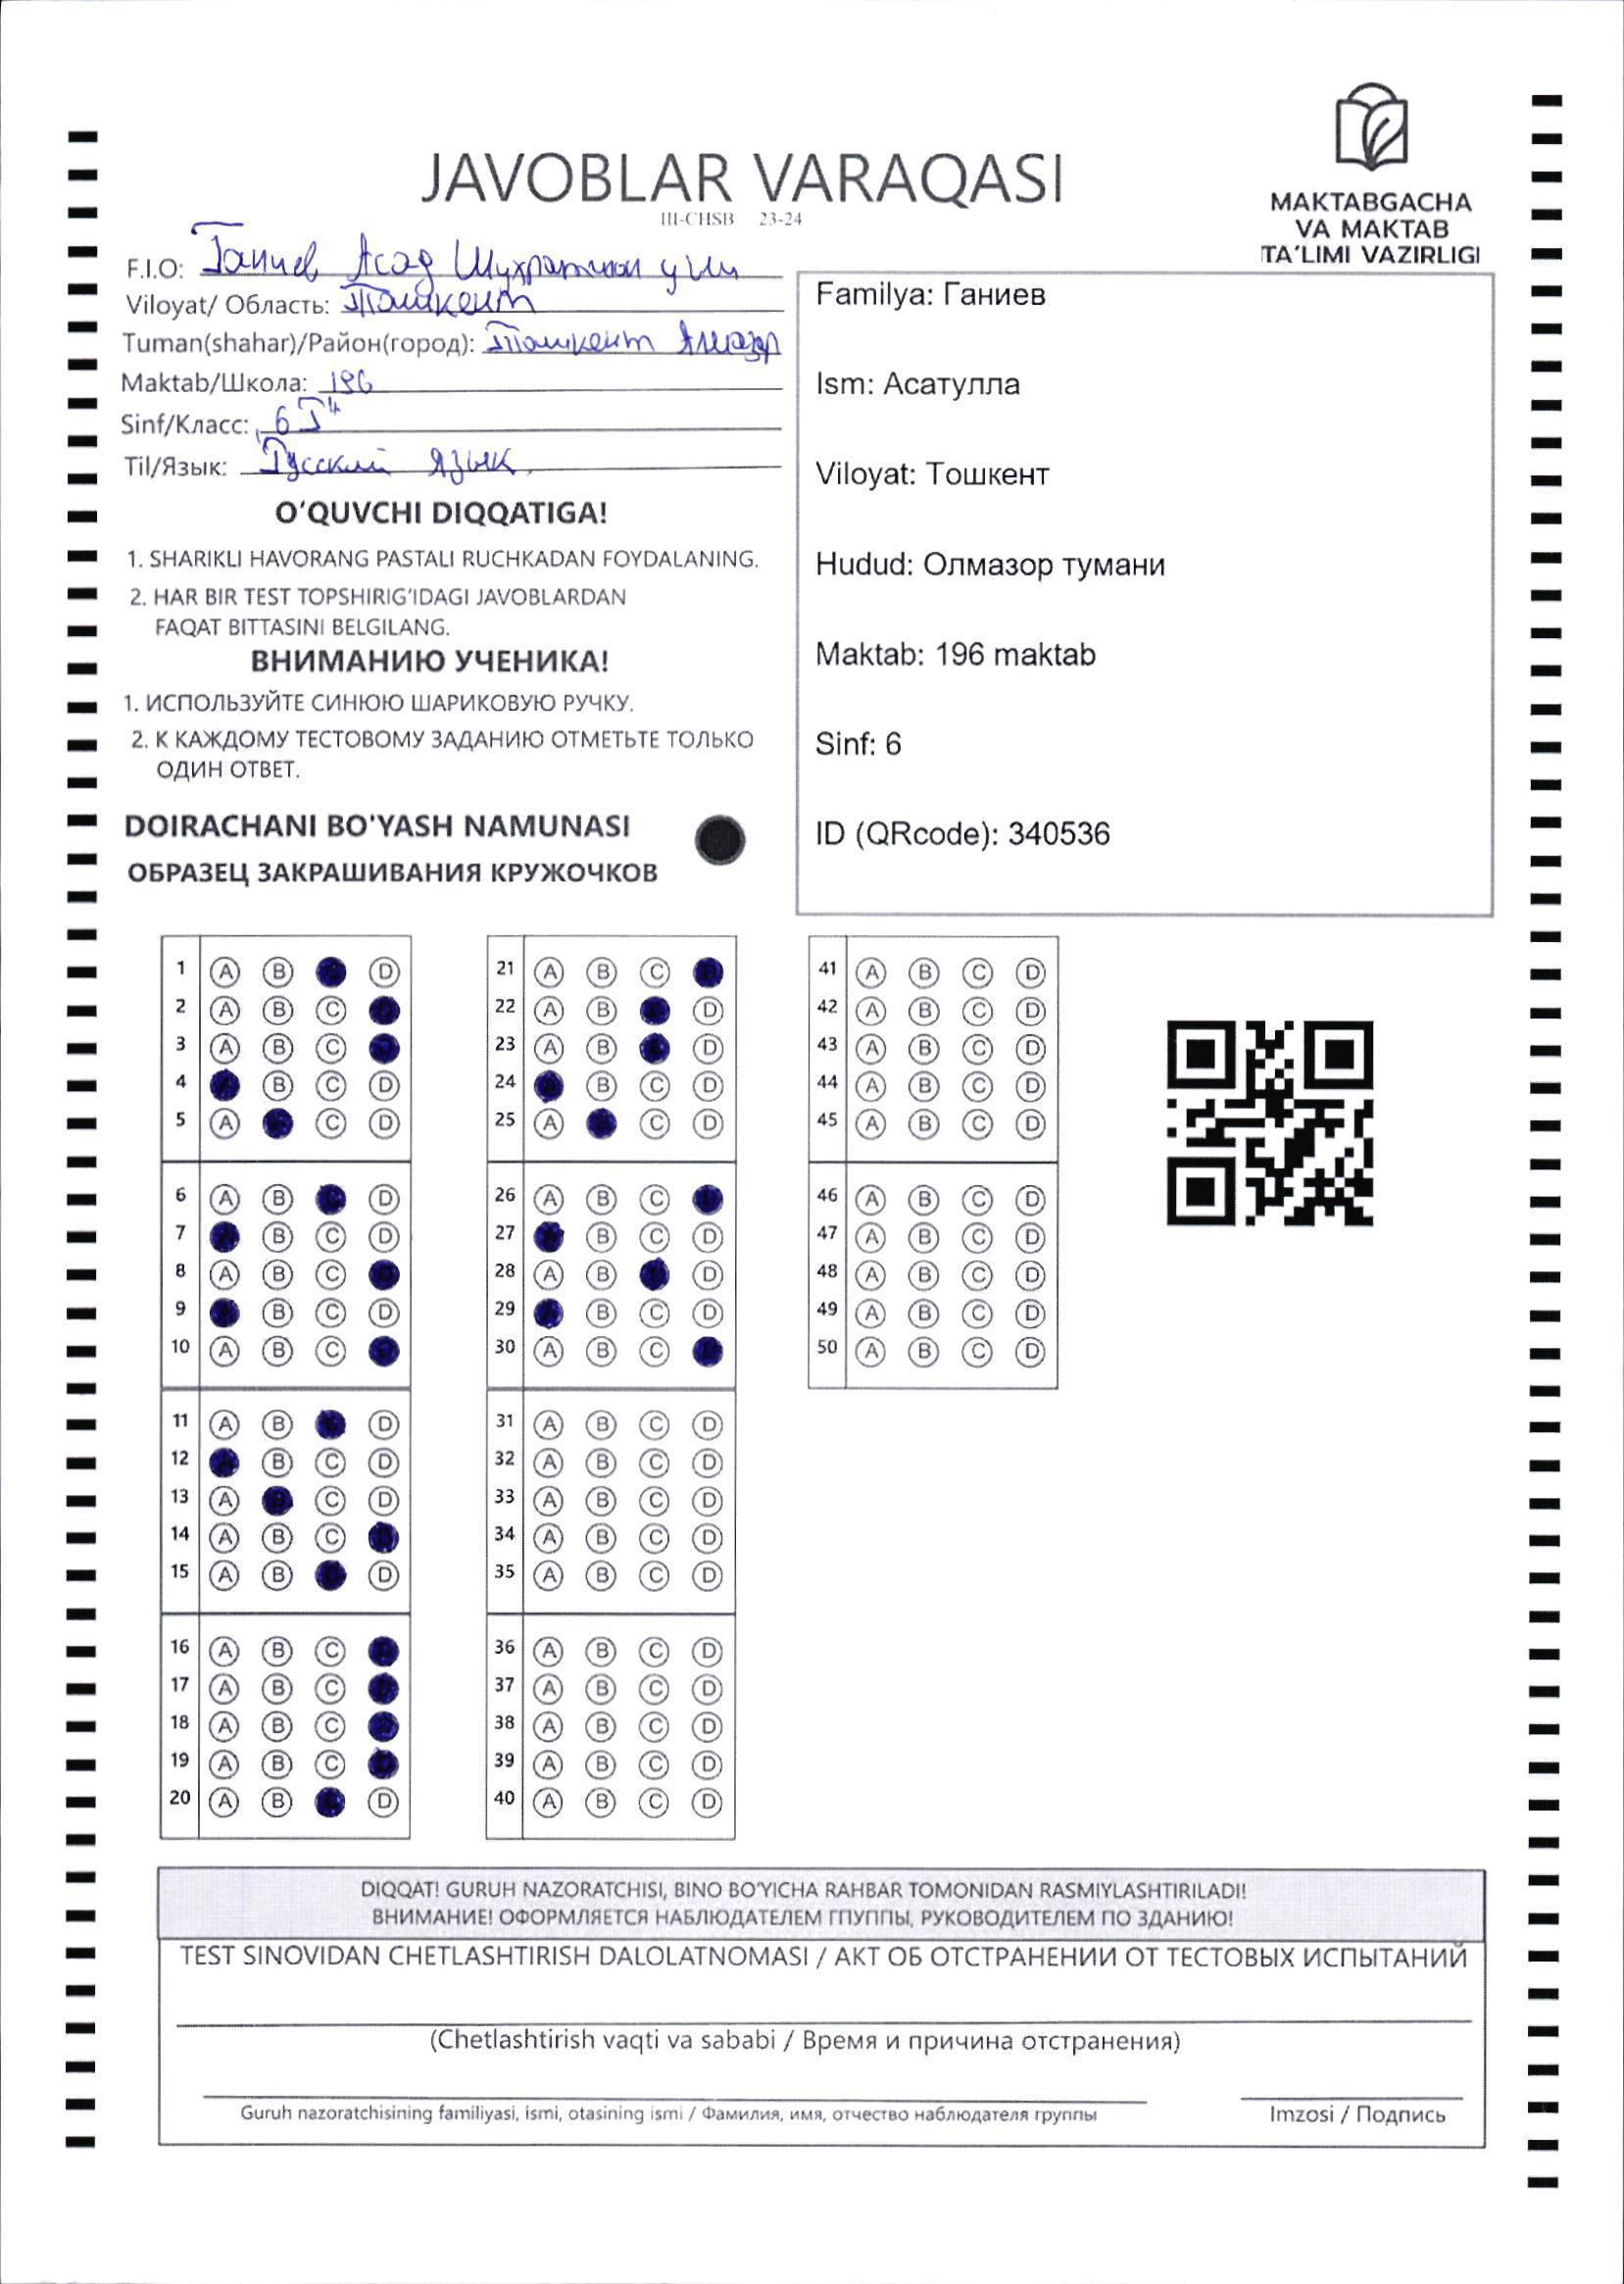 JAVOBLAR VARAQASI
III-CHSB 23-24
MAKTABGACHA
VA MAKTAB
TA'LIMI VAZIRLIGI
F.I.O: Ганиев Асад Шухратжон угли
Viloyat/ Область: Ташкент
Tuman(shahar)/Район(город): Ташкент Алмазар
Maktab/Школа: 196
Sinf/Класс: 6
Til/Язык: Русский язык.
O'QUVCHI DIQQATIGA!
1. SHARIKLI HAVORANG PASTALI RUCHKADAN FOYDALANING.
2. HAR BIR TEST TOPSHIRIG'IDAGI JAVOBLARDAN
FAQAT BITTASINI BELGILANG.
ВНИМАНИЮ УЧЕНИКА!
1. ИСПОЛЬЗУЙТЕ СИНЮЮ ШАРИКОВУЮ РУЧКУ.
2. К КАЖДОМУ ТЕСТОВОМУ ЗАДАНИЮ ОТМЕТЬТЕ ТОЛЬКО
ОДИН ОТВЕТ.
DOIRACHANI BO'YASH NAMUNASI
ОБРАЗЕЦ ЗАКРАШИВАНИЯ КРУЖОЧКОВ
Familya: Ганиев
Ism: Асатулла
Viloyat: Тошкент
Hudud: Олмазор тумани
Maktab: 196 maktab
Sinf: 6
ID (QRcode): 340536
1 A B D
2 A B C
3 A B C
4 B C D
5 A C D
6 A B D
7 B C D
8 A B C
9 B C D
10 A B C
11 A B D
12 B C D
13 A C D
14 A B C
15 A B D
16 A B C
17 A B C
18 A B C
19 A B C
20 A B D
21 A B C
22 A B D
23 A B D
24 B C D
25 A C D
26 A B C
27 B C D
28 A B D
29 B C D
30 A B C
31 A B C D
32 A B C D
33 A B C D
34 A B C D
35 A B C D
36 A B C D
37 A B C D
38 A B C D
39 A B C D
40 A B C D
41 A B C D
42 A B C D
43 A B C D
44 A B C D
45 A B C D
46 A B C D
47 A B C D
48 A B C D
49 A B C D
50 A B C D
DIQQAT! GURUH NAZORATCHISI, BINO BO'YICHA RAHBAR TOMONIDAN RASMIYLASHTIRILADI!
ВНИМАНИЕ! ОФОРМЛЯЕТСЯ НАБЛЮДАТЕЛЕМ ГПУППЫ, РУКОВОДИТЕЛЕМ ПО ЗДАНИЮ!
TEST SINOVIDAN CHETLASHTIRISH DALOLATNOMASI / АКТ ОБ ОТСТРАНЕНИИ ОТ ТЕСТОВЫХ ИСПЫТАНИЙ
(Chetlashtirish vaqti va sababi / Время и причина отстранения)
Guruh nazoratchisining familiyasi, ismi, otasining ismi / Фамилия, имя, отчество наблюдателя группы
Imzosi / Подпись